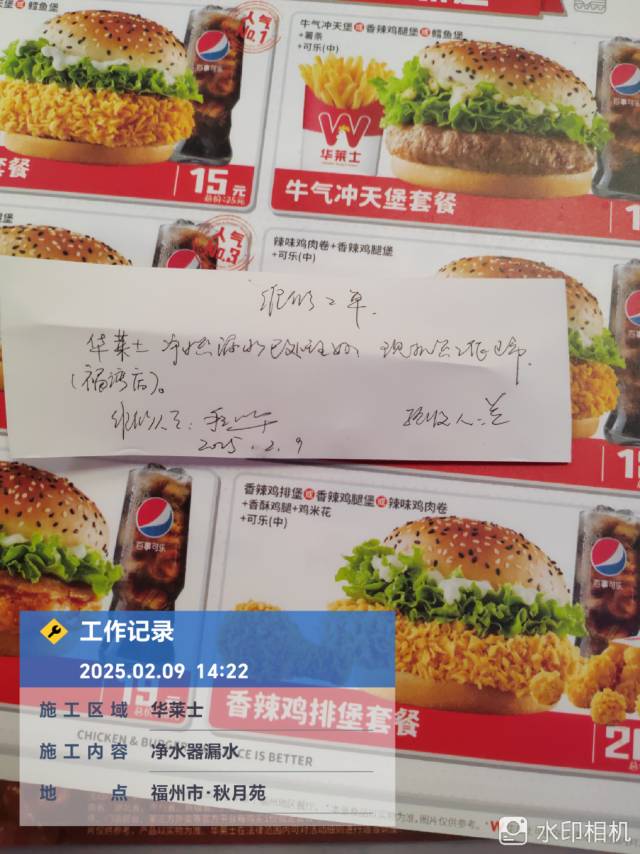 堡或鳕鱼堡
人气
NO.1
百事可乐
套餐
15元
总价:25元
牛气冲天堡或香辣鸡腿堡或鳕鱼堡
+薯条
+可乐(中)
华莱士
牛气冲天堡套餐
人气
NO.3
辣味鸡肉卷+香辣鸡腿堡
+可乐(中)
维修工单
华莱士 净水器漏水已处理好
(福湾店)。
维修人员:
验收人:兰
2025.2.9
百事可乐
15元
香辣鸡排堡或香辣鸡腿堡或辣味鸡肉卷
+香酥鸡腿+鸡米花
+可乐(中)
百事可乐
香辣鸡排堡套餐
CHICKEN & BURGER
ICE IS BETTER
工作记录
2025.02.09 14:22
施工区域 华莱士
施工内容 净水器漏水
地点 福州市·秋月苑
图片仅供参考。
水印相机